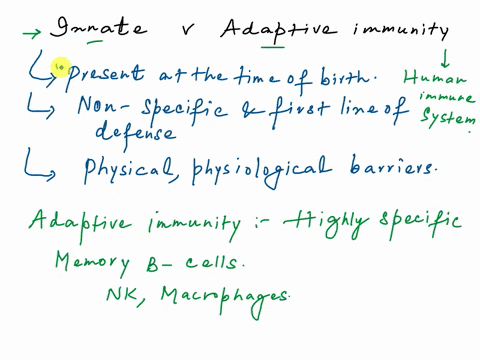 → Innate v Adaptive immunity
Present at the time of birth.
Human immune System
Non-specific & first line of defense
Physical, physiological barriers.
Adaptive immunity :- Highly specific
Memory B-cells.
NK, Macrophages.